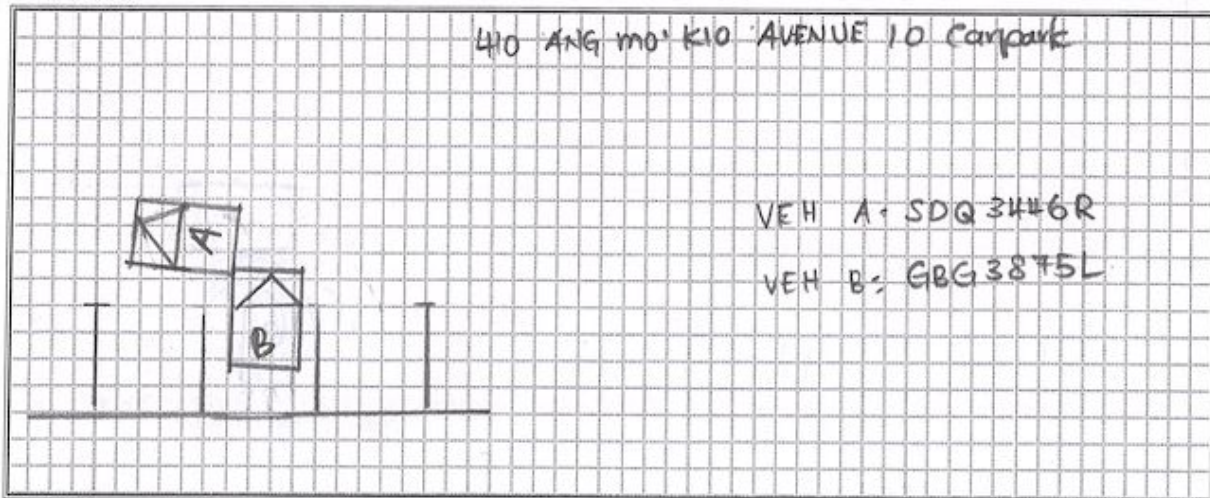 410 ANG MO KIO AVENUE 10 Carpark
VEH A: SDQ3446R
VEH B: GBG3875L
A
B